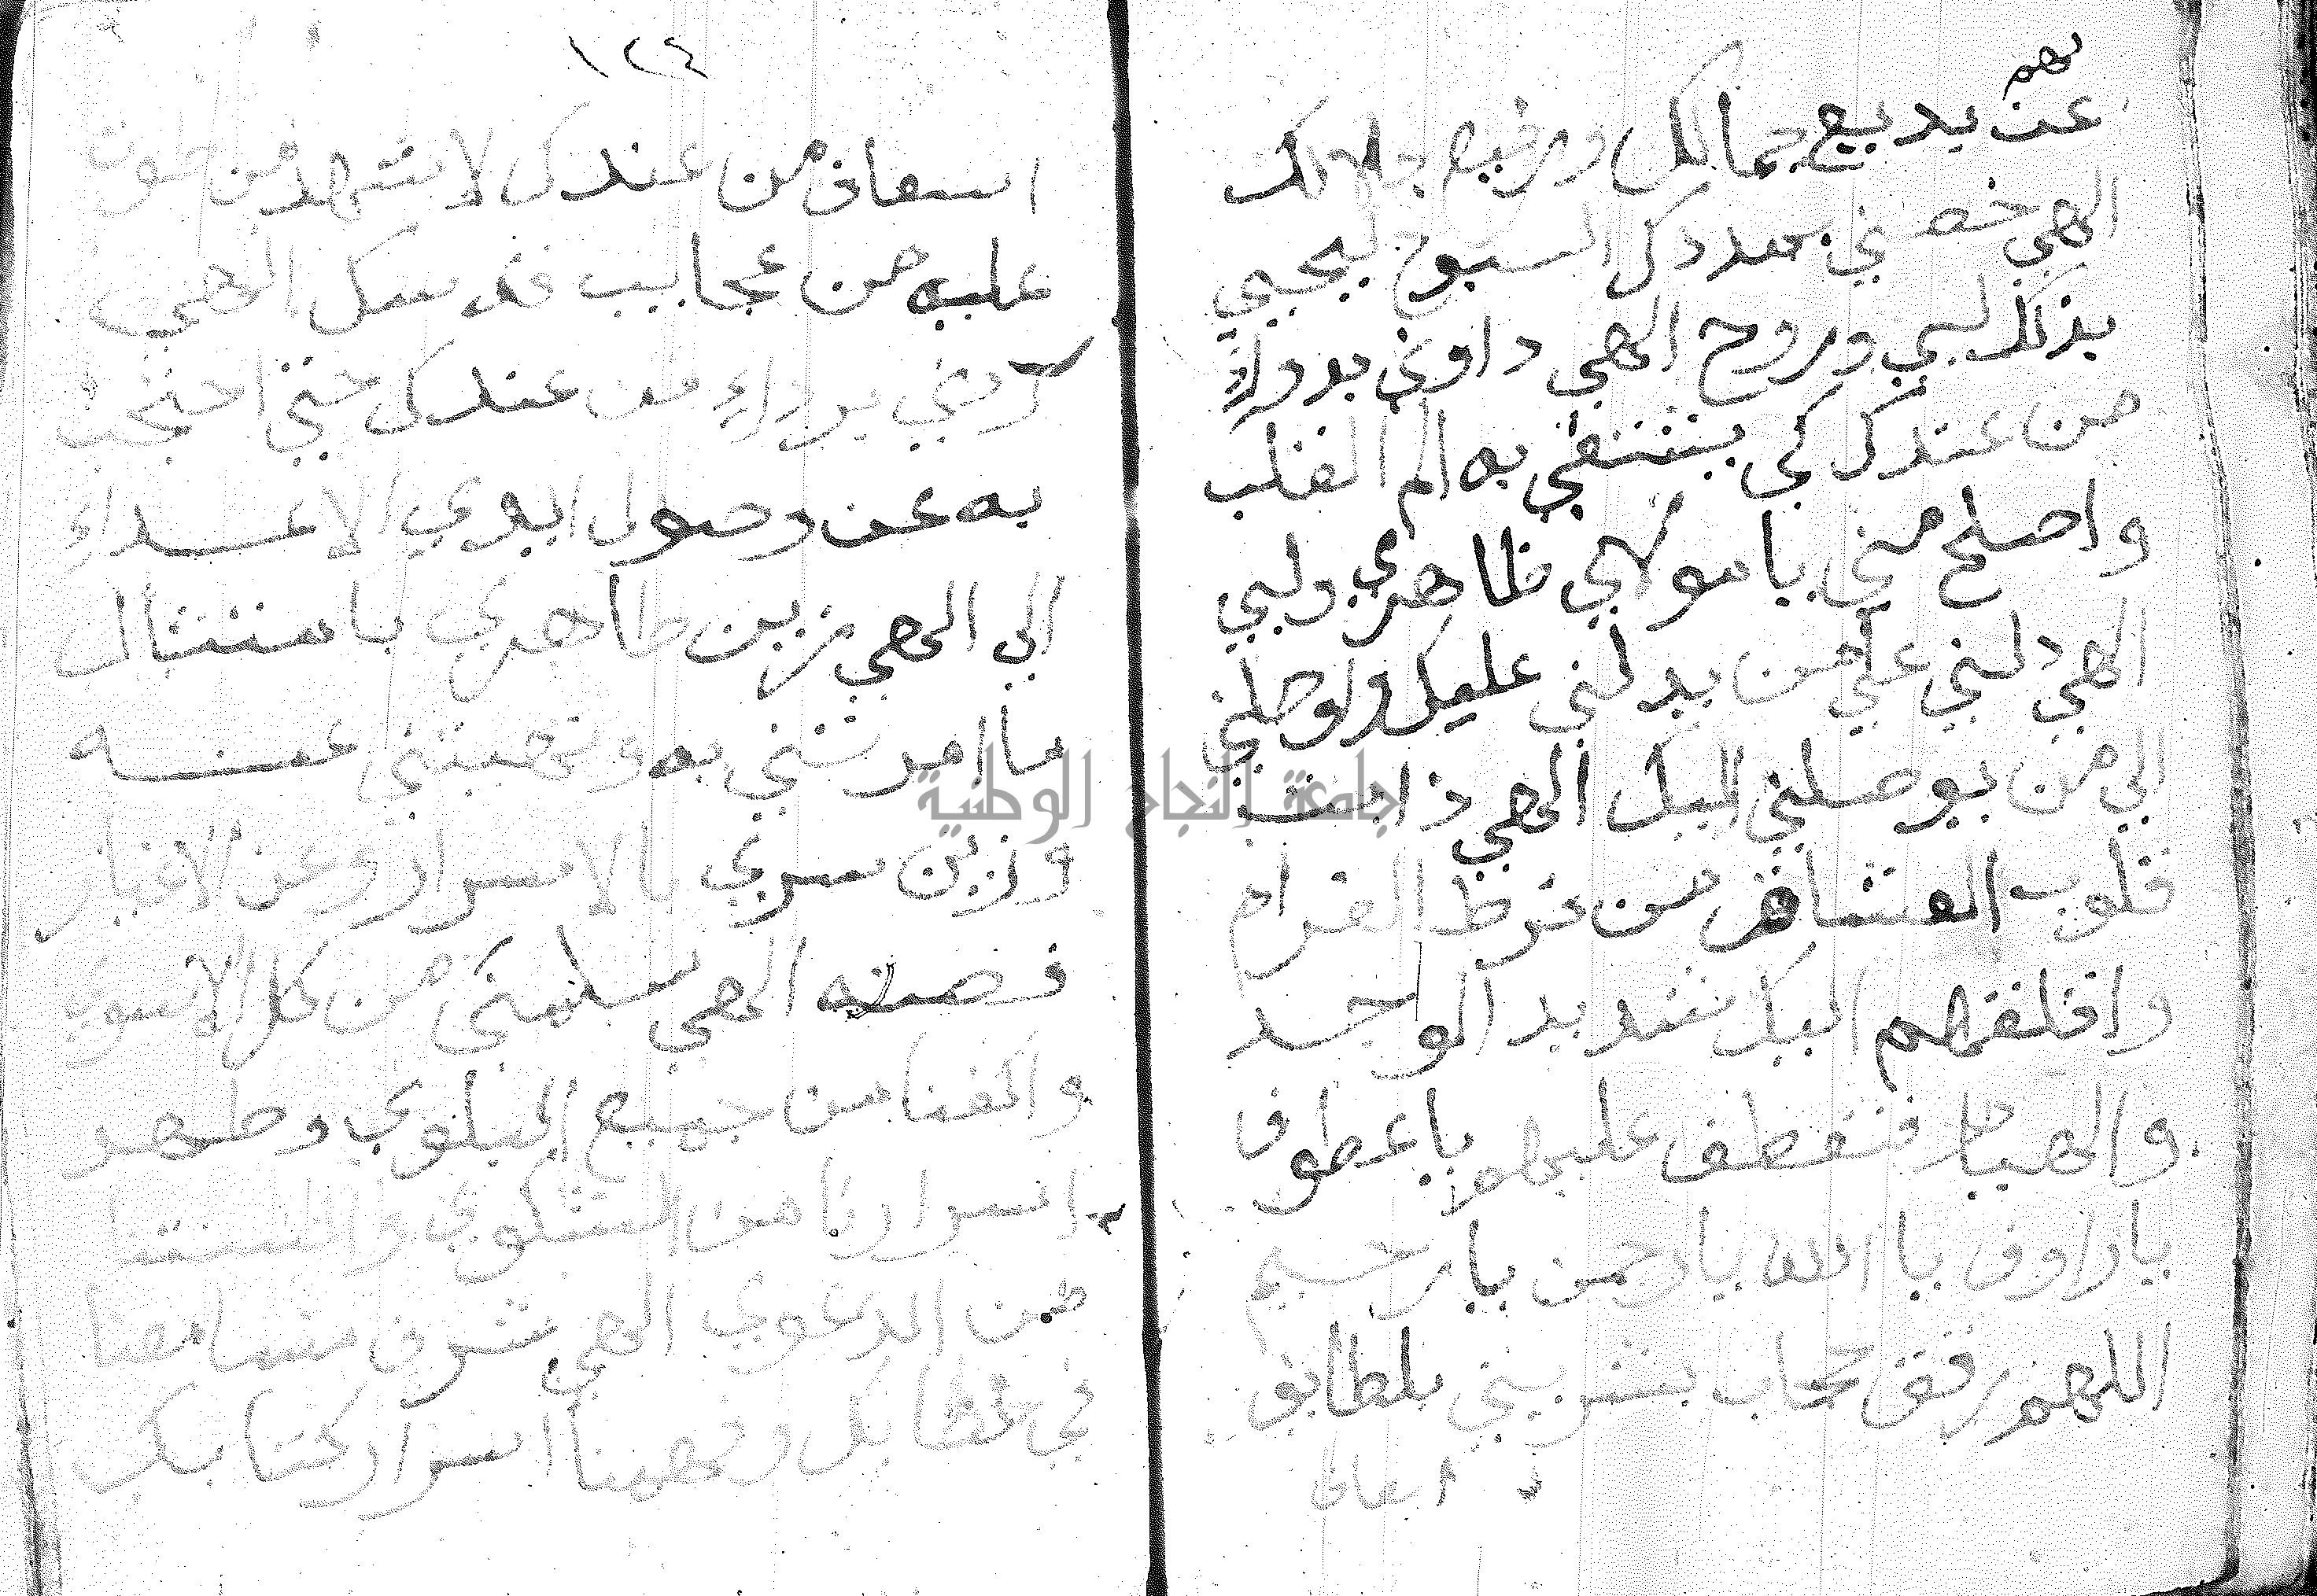 نهم
عن بديع جمالك ورفيع جلالك
الهي خصني بمددك السبوح ليحيي
بذلك لبي وروح الهي داوني بدواء
من عندك كي يشتفي به الم القلب
واصلح مني يا مولاي ظاهري ولبي
الهي دلني علي من يدلني عليك واوصلني
الي من يوصلني اليك الهي ذابت
قلوب العشاق من فرط الغرام
واقلقهم اليك شديد الوجد
والهيام فتعطف عليهم يا عطوف
يا راوف يا الله يا رحمن يا رحيم
اللهم رقق حجاب بشريتي بلطايف
اسعاف
١٢٤
اسعاف من عندك لا شهد من
عليه من عجايب قدسك الهي
ردني برداء من عندك حتي احتجب
به عن وصول ايدي الاعداء
الي الهي زين ظاهري بامتثال
ما امرتني به ونهيتني عنه
وزين سري بالاسرار وعن الاغيار
فصنه الهي سلمني من كل الاسوي
واكفنا من جميع البلوي وطهر
اسرارنا من الشكوي والسنتنا
من الدعوي الهي شرف مسامعنا
في خطابك وفهمنا اسرار كتابك
جامعة النجاح الوطنية